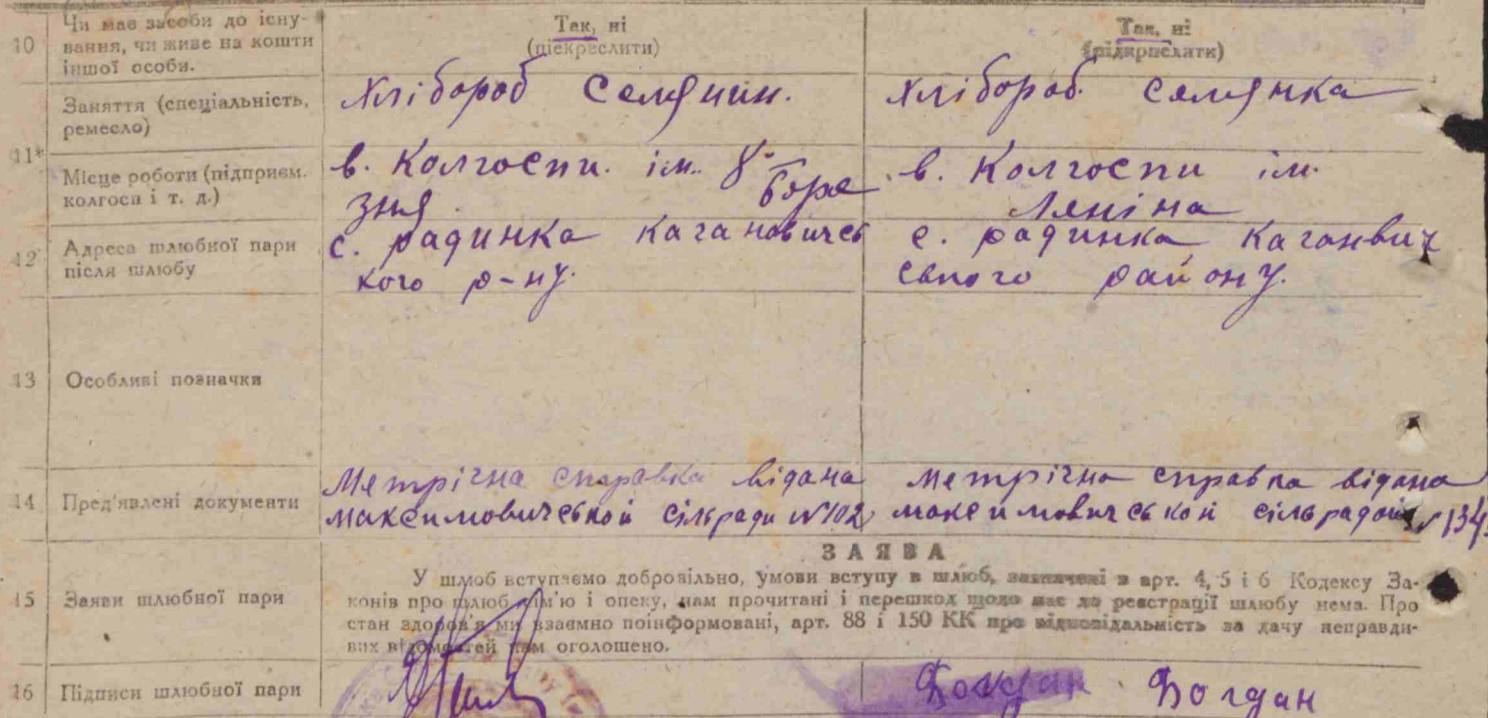 10 Чи має засоби до існування, чи живе на кошти іншої особи.
Так, ні
(підкреслити)
Так, ні
(підкреслити)
11* Заняття (спеціальність, ремесло)
Хлібороб Селянин.
Хлібороб Селянка
Місце роботи (підприєм. колгосп і т. д.)
в. Колгоспи. ім. 8-
бере
зня
в. Колгоспи ім.
Леніна
12 Адреса шлюбної пари після шлюбу
с. радинка кагановичсь
кого р-ну.
с. радинка Каганвич
ського району.
13 Особливі позначки
14 Пред'явлені документи
Метрічна справка відана
максимовичеської сільради №102
метрічна справка відана
максимовичеської сільрадой №134
ЗАЯВА
15 Заяви шлюбної пари
У шлюб вступаємо добровільно, умови вступу в шлюб, зазначені в арт. 4, 5 і 6 Кодексу За-
конів про шлюб, сім'ю і опеку, нам прочитані і перешкод щодо нас до реєстрації шлюбу нема. Про
стан здоров'я ми взаємно поінформовані, арт. 88 і 150 КК про відповідальність за дачу неправди-
вих відомостей нам оголошено.
16 Підписи шлюбної пари
Богдан